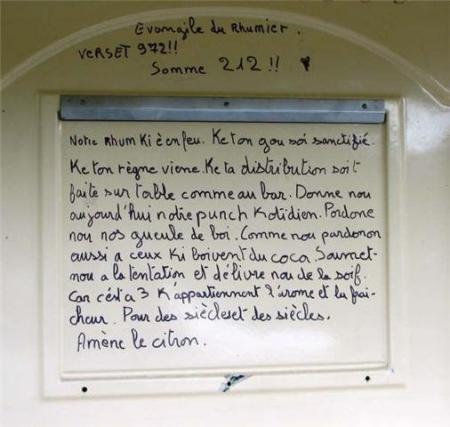 Evangile du Rhumier.
VERSET 972!!
Somme 212!!
Notre Rhum Ki è en feu. Ke ton gou soi sanctifié.
Ke ton règne viene. Ke ta distribution soit
faite sur table comme au bar. Donne nou
aujourd'hui notre punch Kotidien. Pardone
nou nos gueule de boi. Comme nou pardonon
aussi a ceux Ki boivent du coca. Soumet-
nou a la tentation et délivre nou de la soif.
Car c'ést a 3 K'appartiennent l'arome et la fraî-
cheur. Pour des siècles et des siècles.
Amène le citron.